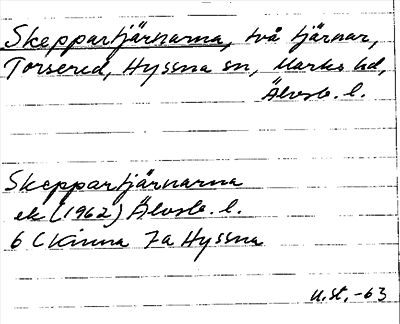 Skeppartjärnarna, två tjärnar,
Torsered, Hyssna sn, Marks hd,
Älvsb. l.
Skeppartjärnarna
ek (1962) Älvsb. l.
6 C Kinna 7a Hyssna
u.st. -63